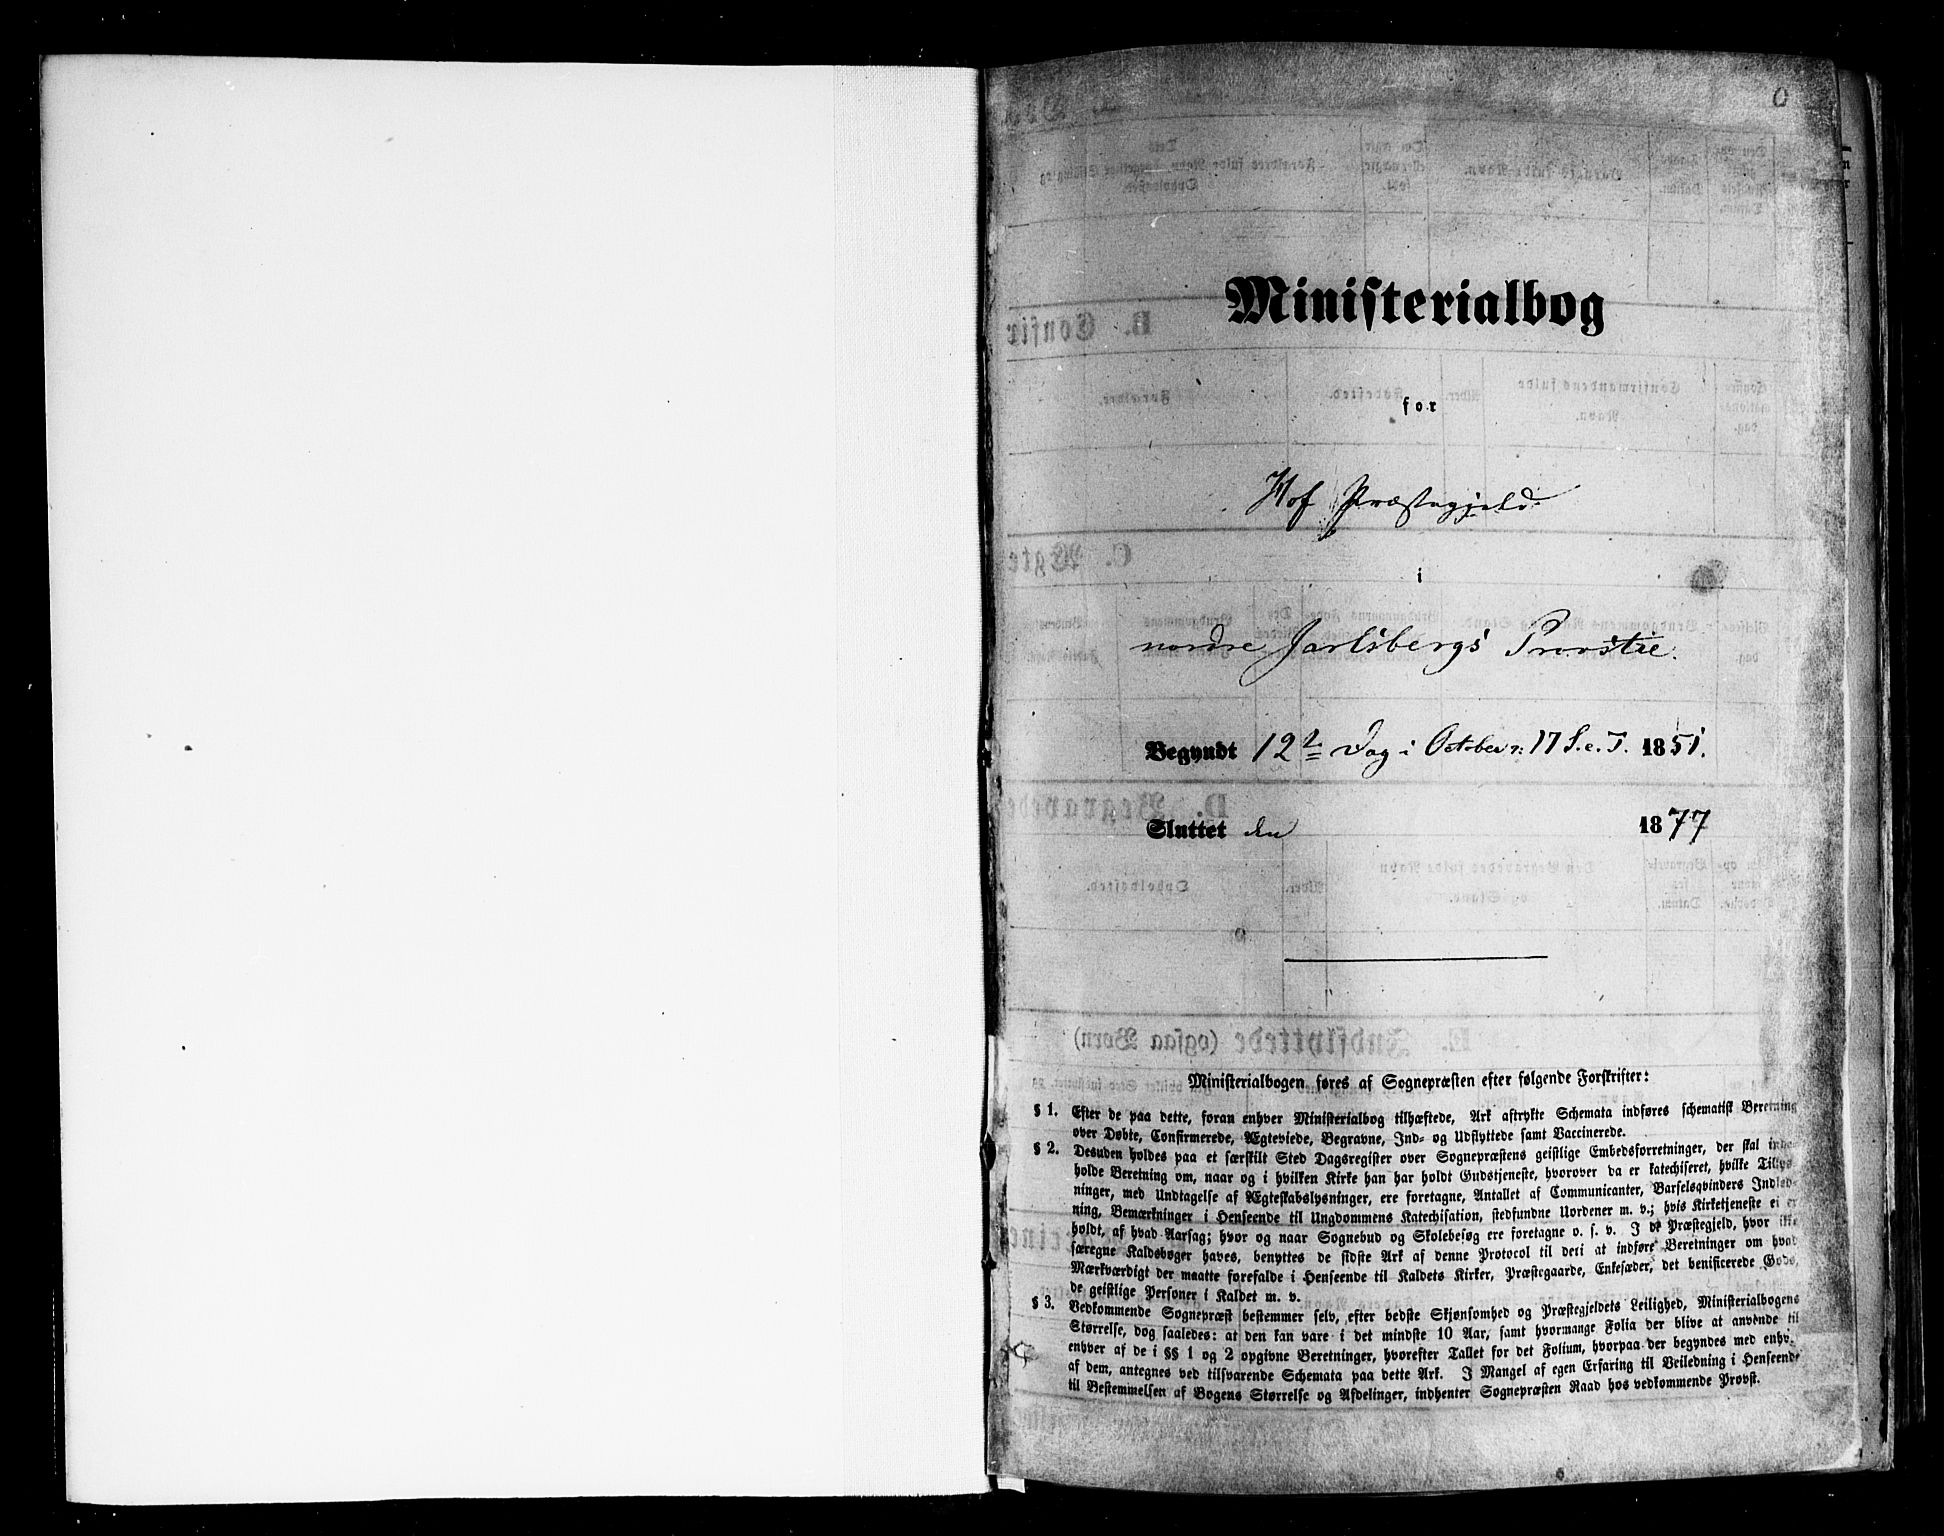 0
Ministerialbog
for
Hof Præstegjeld
i
nordre Jarlsbergs Provstie.
Begyndt 12te Dag i October : 17 S. e. T. 1851.
Sluttet den 1877
Ministerialbogen føres af Sognepræsten efter følgende Forskrifter:
§ 1. Efter de paa dette, foran enhver Ministerialbog tilhæftede, Ark aftrykte Schemata indføres schematisk Beretning
over Døbte, Confirmerede, Ægteviede, Begravne, Ind- og Udflyttede samt Vaccinerede.
§ 2. Desuden holdes paa et særskilt Sted Dagsregister over Sognepræstens geistlige Embedsforretninger, der skal inde-
holde Beretning om, naar og i hvilken Kirke han har holdt Gudstjeneste, hvorover da er katechiseret, hvilke Tillys-
ninger, med Undtagelse af Ægteskabslysninger, ere foretagne, Antallet af Communicanter, Barselqvinders Indled-
ning, Bemærkninger i Henseende til Ungdommens Katechisation, stedfundne Uordener m. v.; hvis Kirketjeneste ei er
holdt, af hvad Aarsag; hvor og naar Sognebud og Skolebesøg ere foretagne o. s. v. I de Præstegjeld, hvor ikke
særegne Kaldsbøger haves, benyttes de sidste Ark af denne Protocol til deri at indføre Beretninger om hvad
Mærkværdigt der maatte forefalde i Henseende til Kaldets Kirker, Præstegaarde, Enkesæder, det benificerede Gods,
de geistlige Personer i Kaldet m. v.
§ 3. Vedkommende Sognepræst bestemmer selv, efter bedste Skjønsomhed og Præstegjeldets Leilighed, Ministerialbogens
Størrelse, dog saaledes: at den kan vare i det mindste 10 Aar, samt hvormange Folia der blive at anvende til
enhver af de i §§ 1 og 2 opgivne Beretninger, hvorefter Tallet for det Folium, hvorpaa der begyndes med enhver
af dem, antegnes ved tilsvarende Schemata paa dette Ark. I Mangel af egen Erfaring til Veiledning i Henseende
til Bestemmelsen af Bogens Størrelse og Afdelinger, indhenter Sognepræsten Raad hos vedkommende Provst.